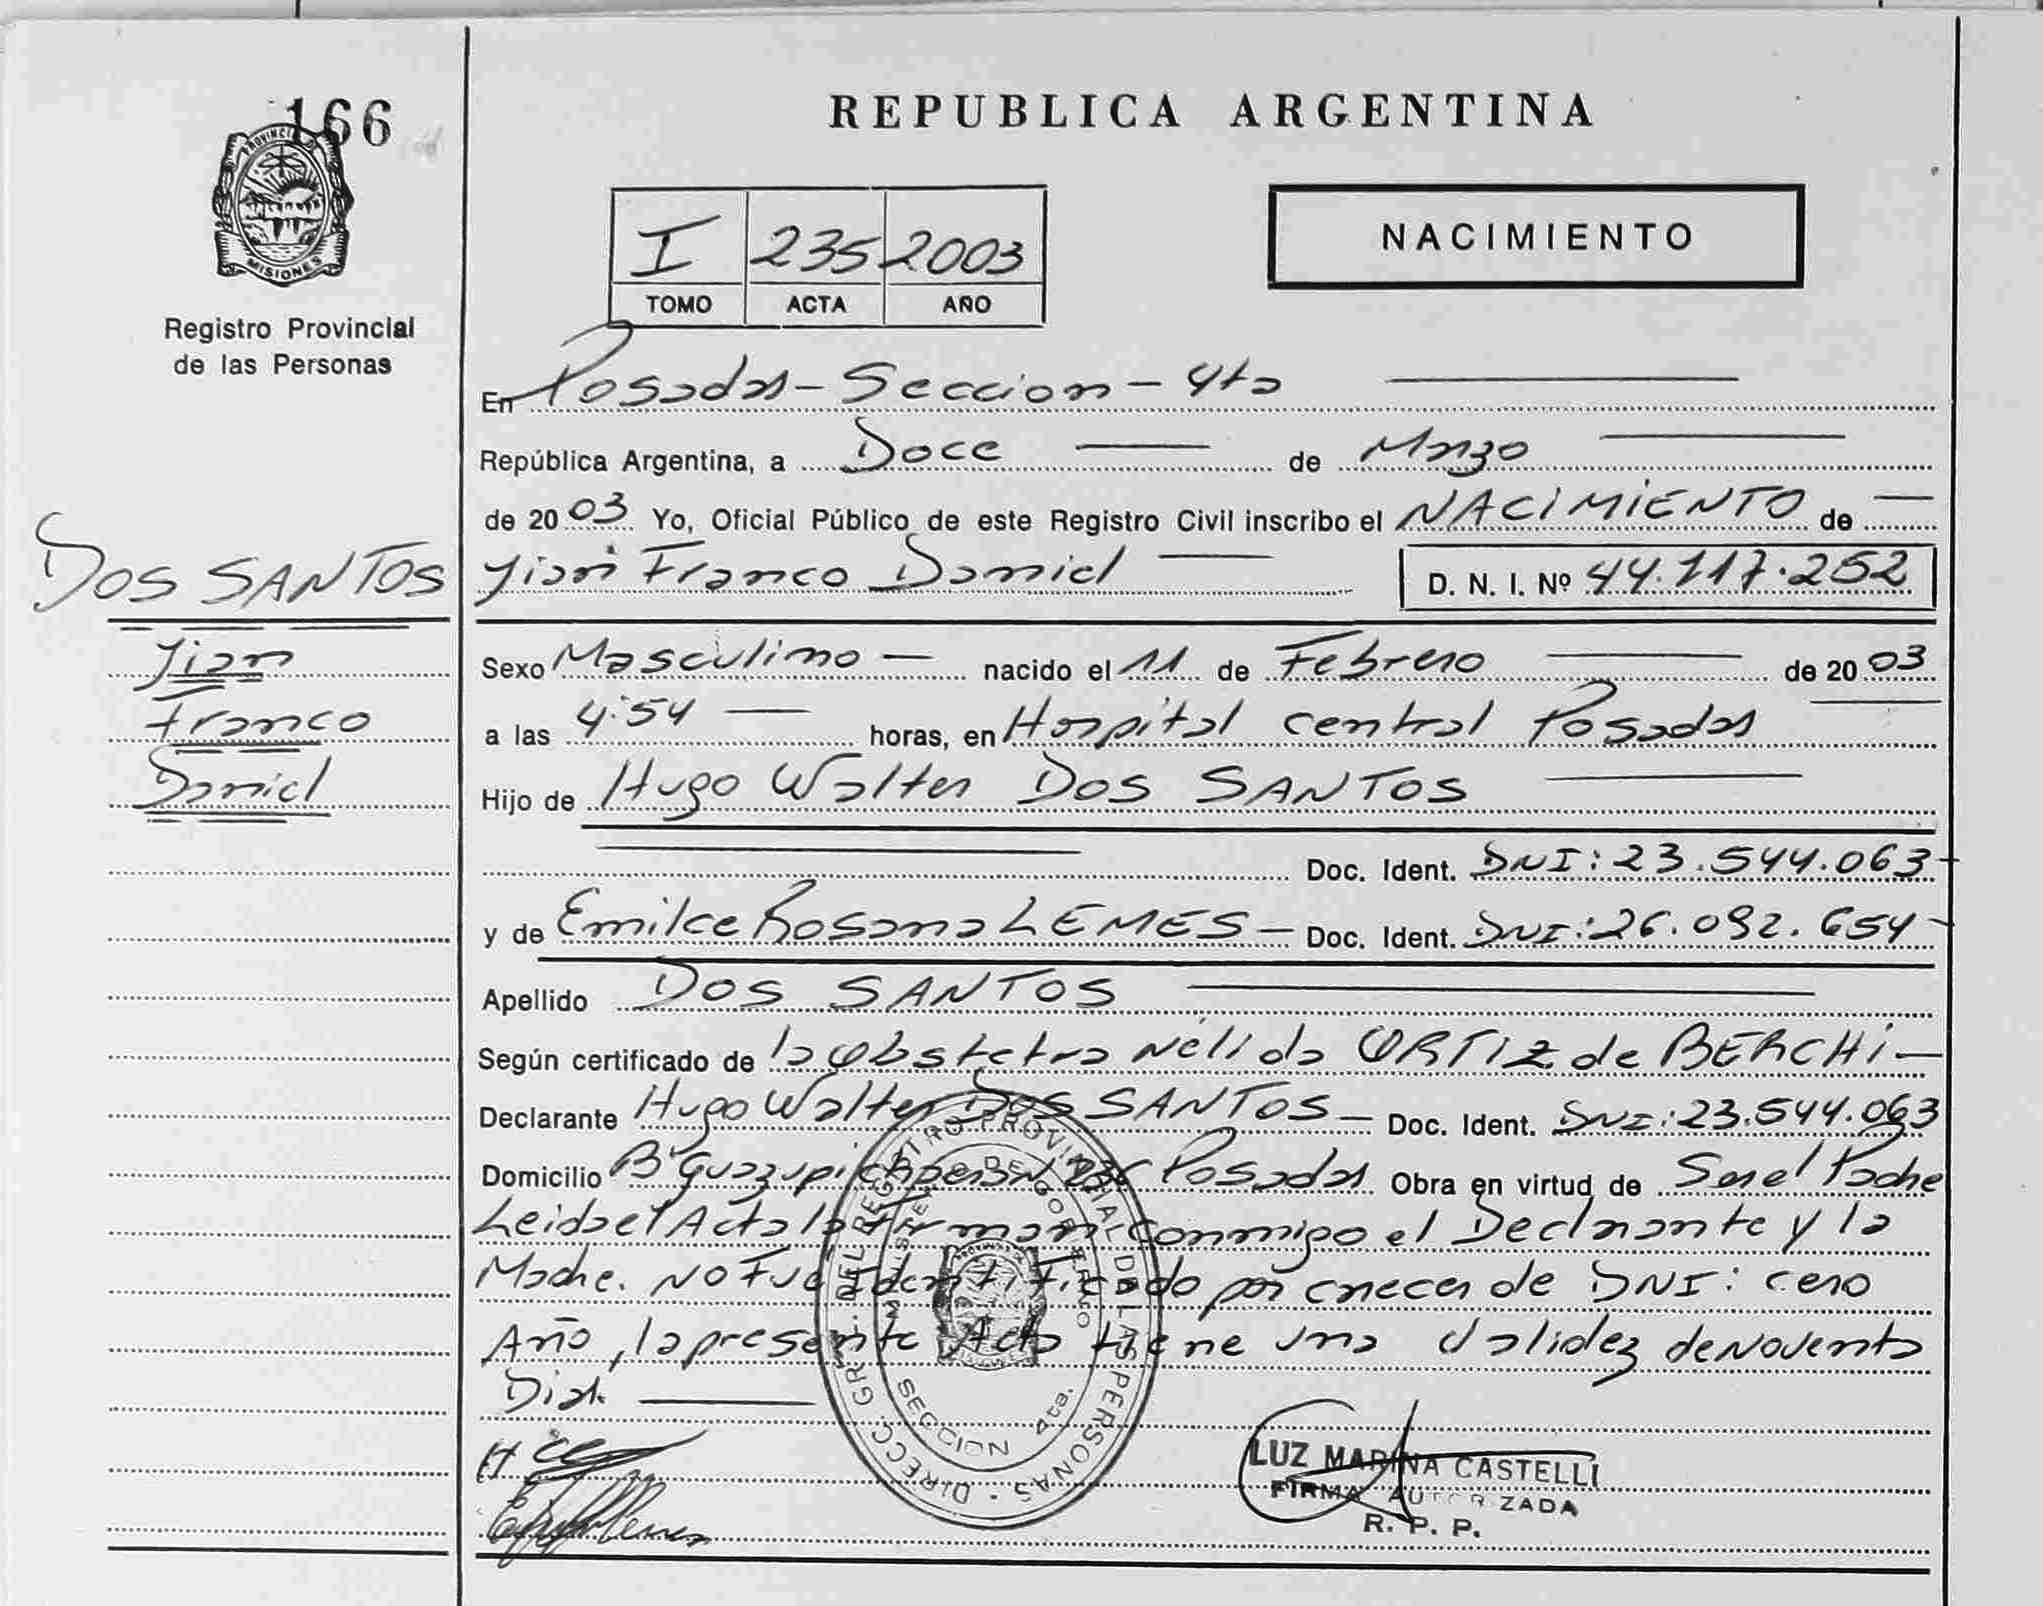 166
PROVINCIA DE
MISIONES
Registro Provincial
de las Personas
REPUBLICA ARGENTINA
I 235 2003
TOMO ACTA AÑO
NACIMIENTO
En Posadas - Seccion - 4ta
República Argentina, a Doce de Marzo
de 2003 Yo, Oficial Público de este Registro Civil inscribo el NACIMIENTO de
DOS SANTOS
Jian Franco Daniel D. N. I. Nº 44.117.252
Jian
Franco
Daniel
Sexo Masculino - nacido el 11 de Febrero de 2003
a las 4:54 horas, en Hospital central Posadas
Hijo de Hugo Walter DOS SANTOS
Doc. Ident. DNI: 23.544.063
y de Emilce Rosana LEMES - Doc. Ident. DNI: 26.092.654
Apellido DOS SANTOS
Según certificado de la Obstetra Nélida ORTIZ de BERCHI -
Declarante Hugo Walter DOS SANTOS - Doc. Ident. DNI: 23.544.063
Domicilio Posadas Obra en virtud de Ser el Padre
Leida el Acta la firman conmigo el Declarante y la
Madre. NO Fue Identificado por crecer de DNI: cero
Año, la presente Acta tiene una validez de Noventa
Dias.
DIRECC. GRAL. DEL REGISTRO PROVINCIAL DE LAS PERSONAS
MINISTERIO DE GOBIERNO
SECCION 4ta.
LUZ MARINA CASTELLI
FIRMA AUTORIZADA
R. P. P.